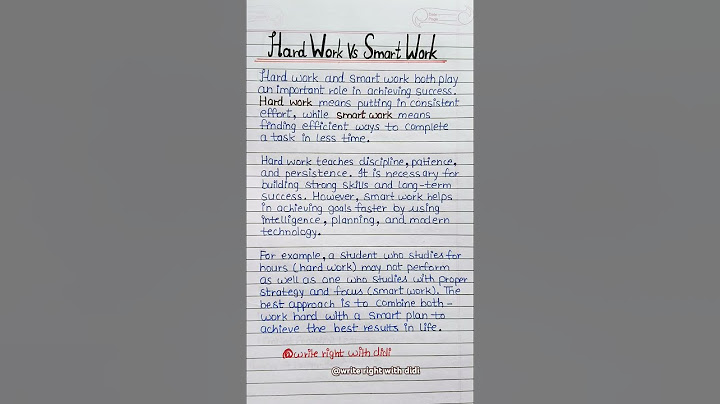 Hard Work Vs Smart Work
Hard work and smart work both play
an important role in achieving success.
Hard work means putting in consistent
effort, while smart work means
finding efficient ways to complete
a task in less time.
Hard work teaches discipline, patience,
and persistence. It is necessary for
building strong skills and long-term
success. However, smart work helps
in achieving goals faster by using
intelligence, planning, and modern
technology.
For example, a student who studies for
hours (hard work) may not perform
as well as one who studies with proper
strategy and focus (smart work). The
best approach is to combine both-
work hard with a smart plan to
achieve the best results in life.
@write right with didi
@write right with didi